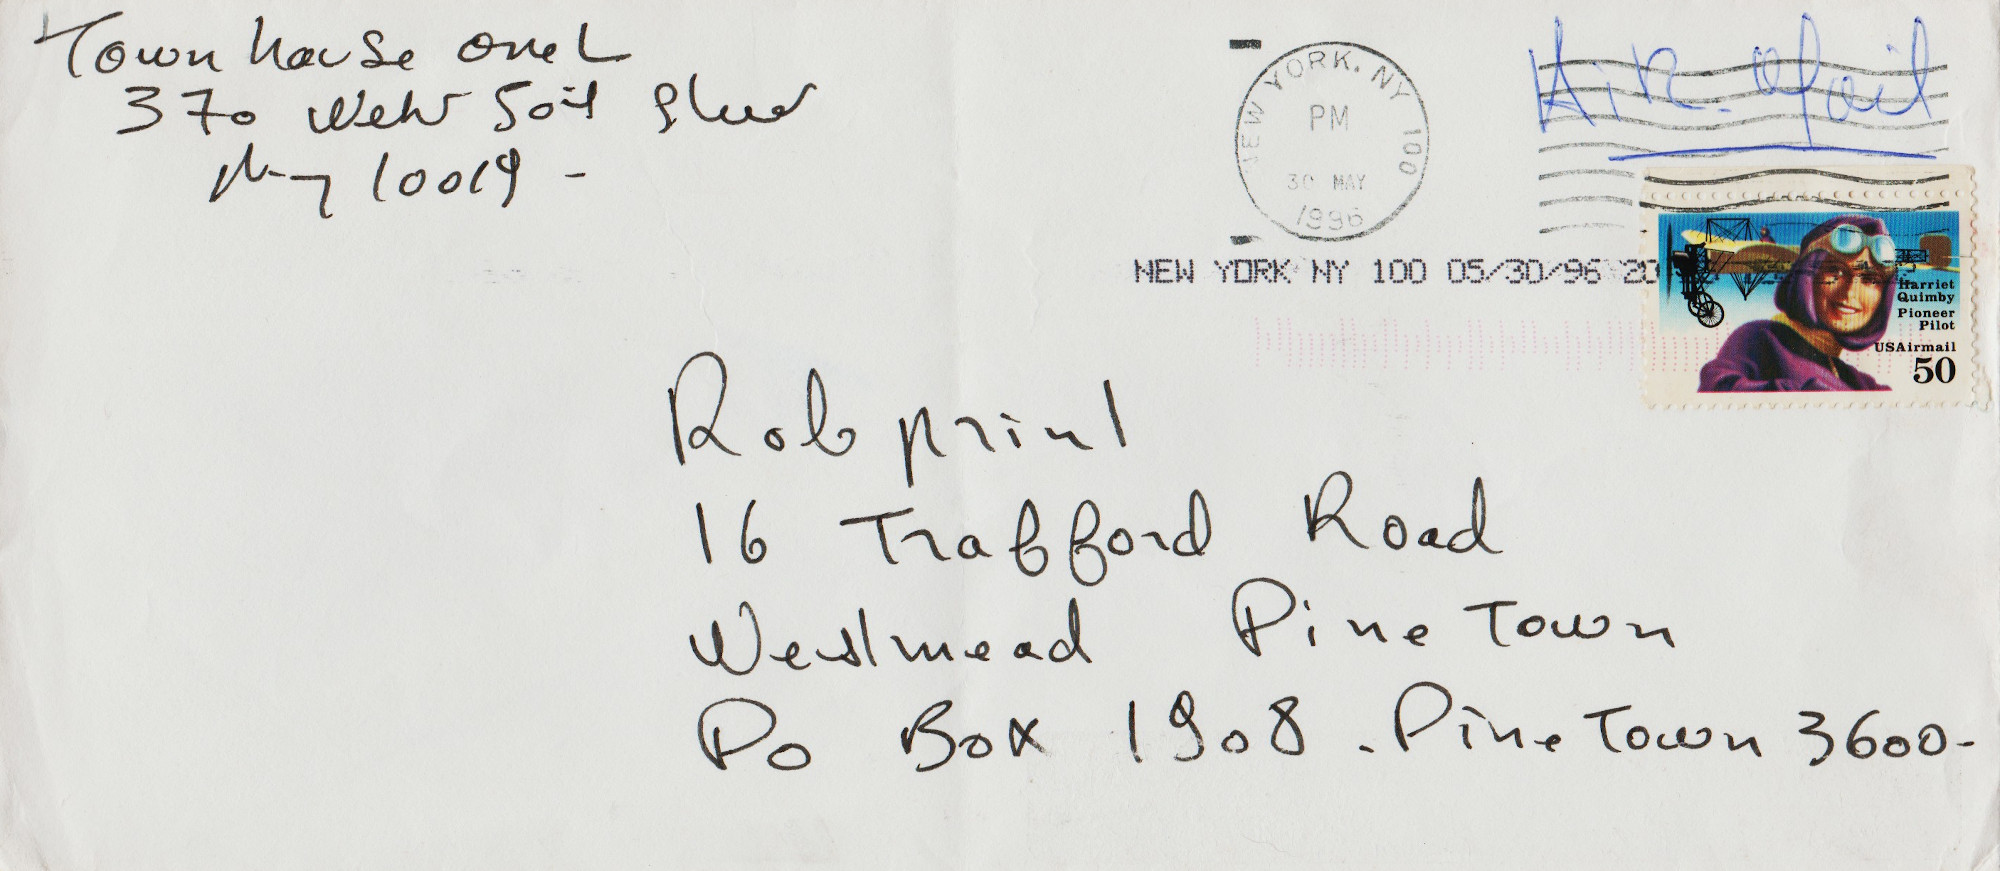 Town house one L
370 West 50th Street
N-y 10019 -
Air. Mail
NEW YORK, NY 100
PM
30 MAY
1996
NEW YORK NY 100 05/30/96 20
Harriet
Quimby
Pioneer
Pilot
USAirmail
50
Rob print
16 Trafford Road
Westmead Pine Town
Po Box 1908 . Pine Town 3600-